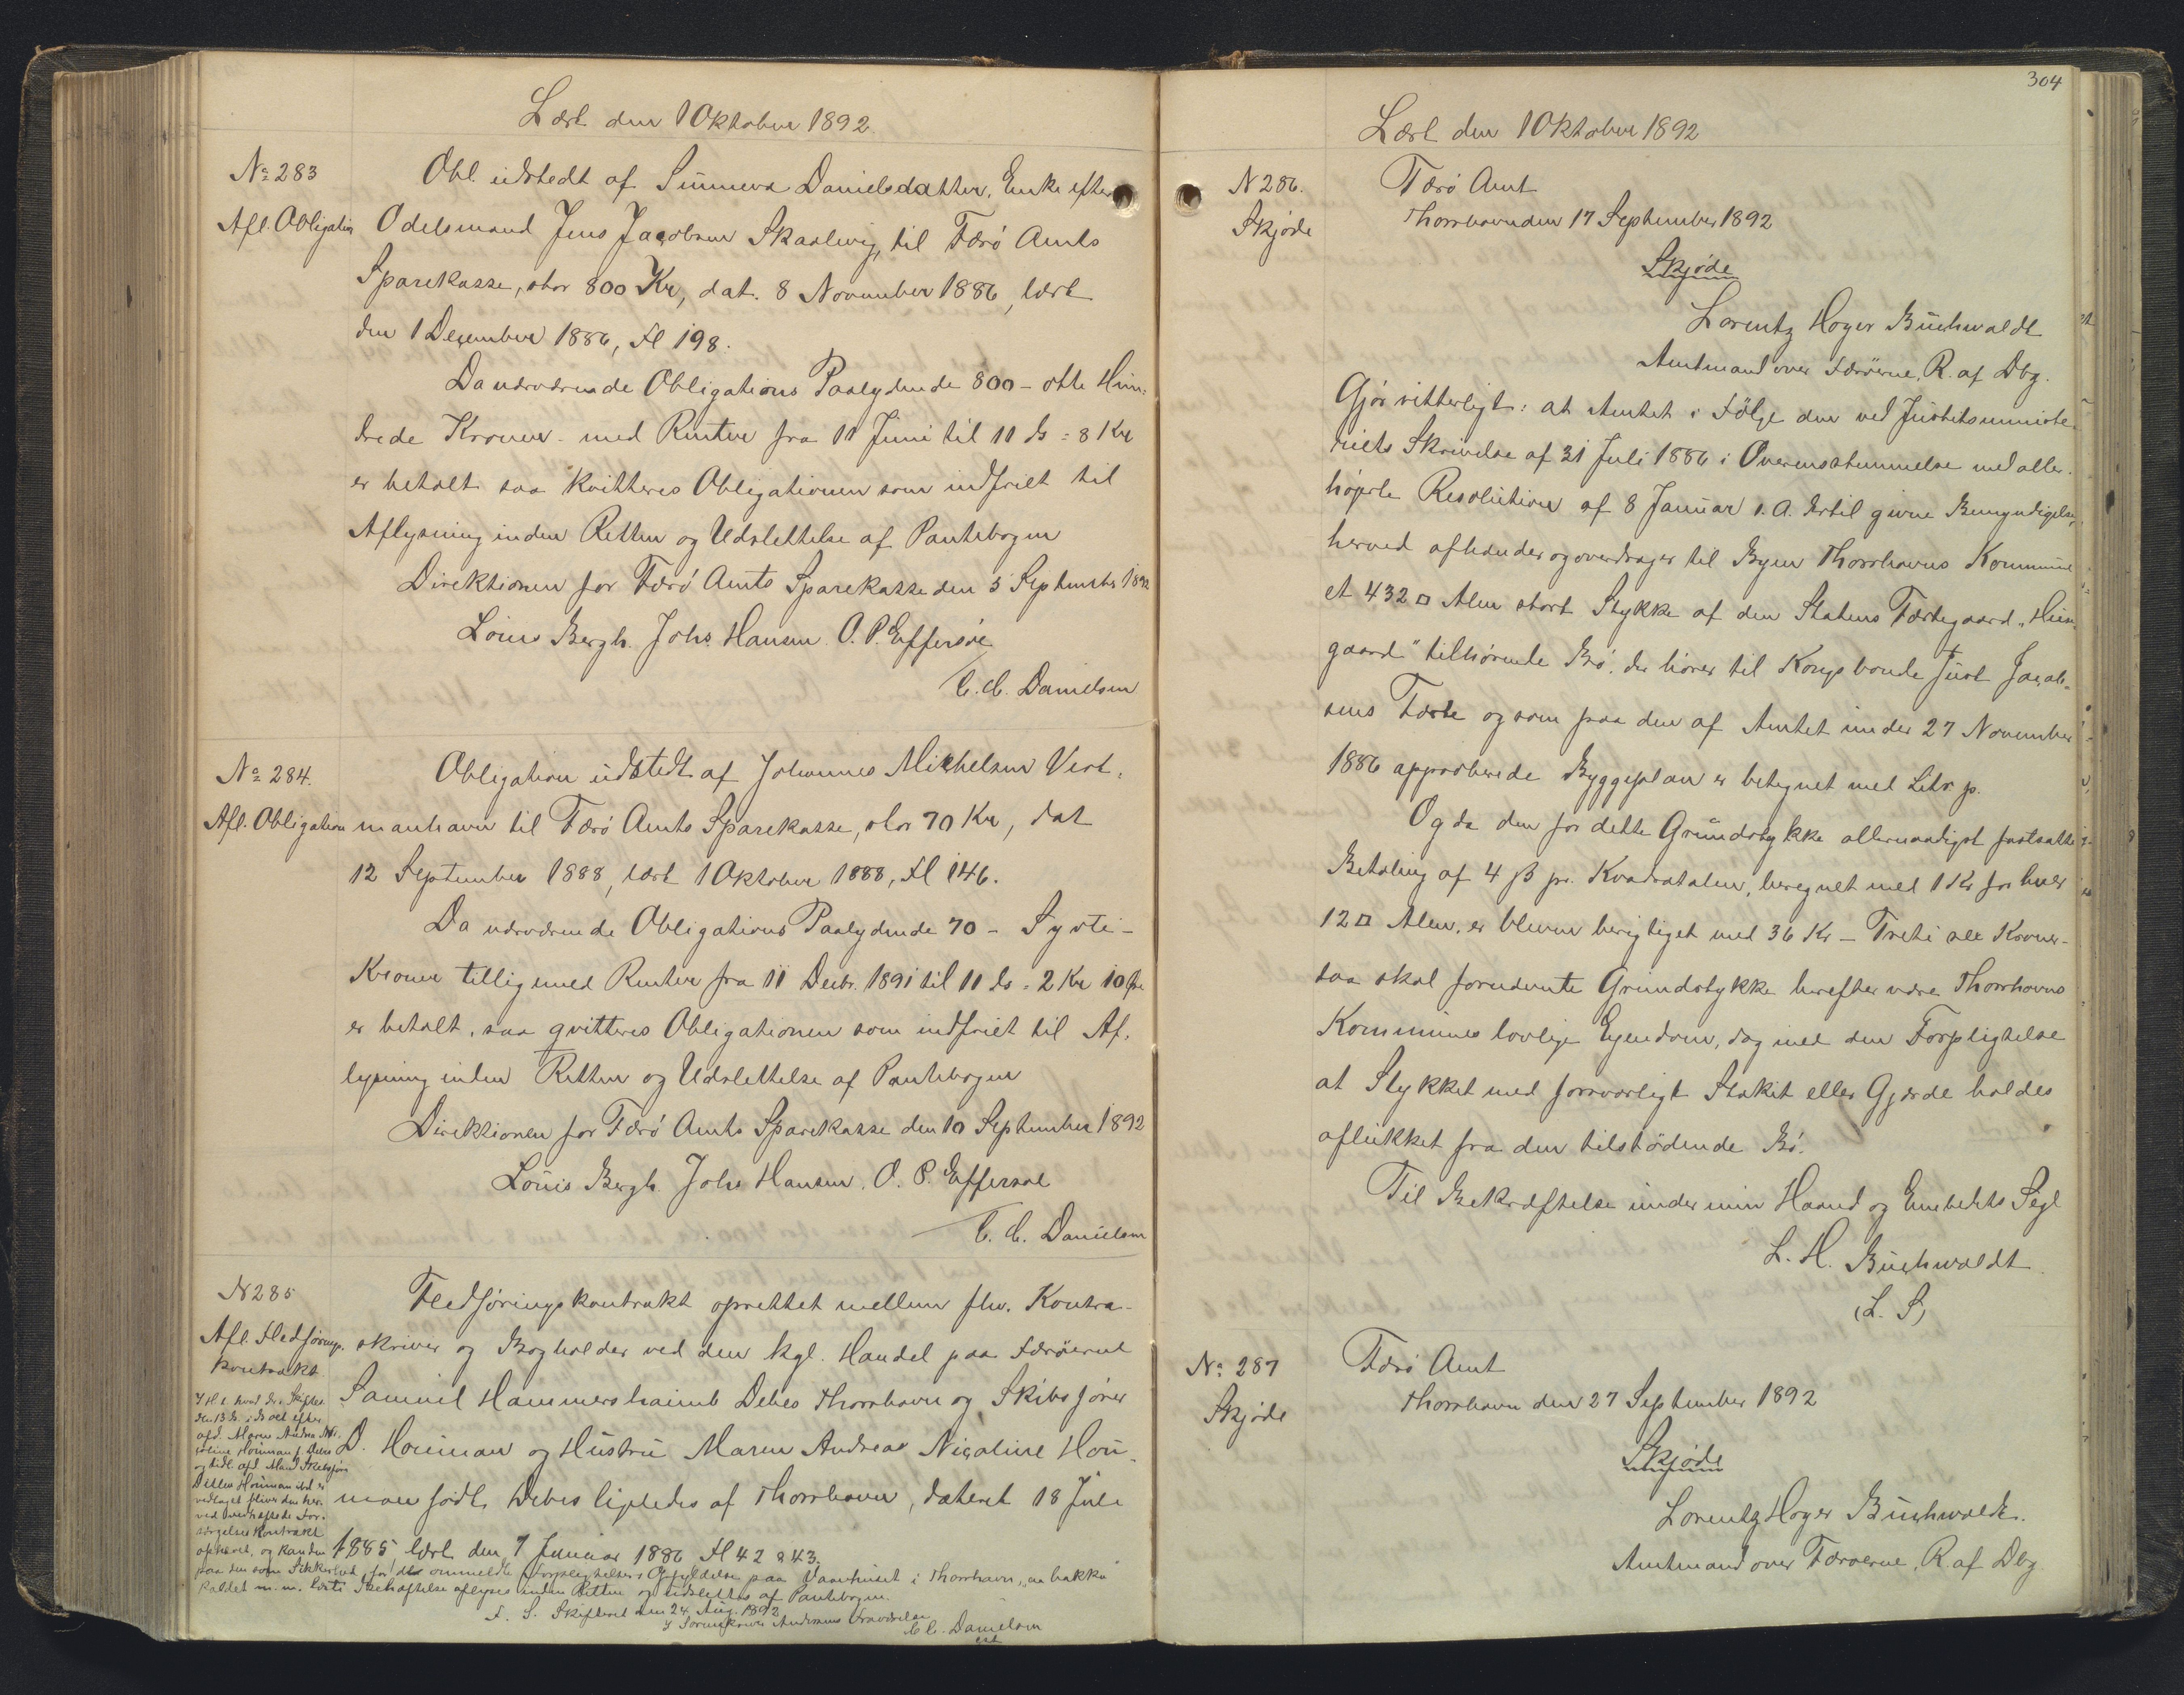 Læst den 1 Oktober 1892
No 283
Afl. Obligation
Obl. udstedt af Sunneva Danielsdatter, Enke efter
Odelsmand Jens Jacobsen Skaalevig, til Færø Amts
Sparekasse, stor 800 Kr, dat. 8 November 1886, læst
den 1 December 1886, Fl 198.
Da nærværende Obligations Paalydende 800 – otte Hun-
drede Kroner – med Renter fra 11 Juni til 11 ds = 8 Kr
er betalt saa kvitteres Obligationen som indfriet til
Aflysning inden Retten og Udslettelse af Pantebogen
Direktionen for Færø Amts Sparekasse den 5 September 1892
Louis Bergh. Johs. Hansen. O. P. Effersøe
C. C. Danielsen
No 284.
Afl. Obligation
Obligation udstedt af Johannes Mikkelsen Vest-
manhavn til Færø Amts Sparekasse, stor 70 Kr, dat
12 September 1888, læst 1 Oktober 1888, Fl 146.
Da nærværende Obligations Paalydende 70 – Syvti –
Kroner tilligemed Renter fra 11 Decbr. 1891 til 11 ds = 2 Kr 10 Øre
er betalt, saa qvitteres Obligationen som indfriet til Af-
lysning inden Retten og Udslettelse af Pantebogen
Direktionen for Færø Amts Sparekasse den 10 September 1892
Louis Bergh. Johs Hansen. O. P. Effersøe
C. C. Danielsen
N 285
Afl. Fledførings-
kontrakt
Fledføringskontrakt oprettet mellem fhv. Kontra-
skriver og Bogholder ved den kgl. Handel paa Færøerne
Samuel Hammershaimb Debes Thorshavn og Skibsfører
D. Houman og Hustru Maren Andrea Nicoline Hou-
man født Debes ligeledes af Thorshavn, dateret 18 Juli
1885 læst den 7 Januar 1886 Fl 42 & 43.
I H. t. hvad der i Skiftet
den 13 ds. i Boet efter
afd. Maren Andrea Ni-
coline Houman f. Debes
og tidl. afd. Mand Skibsfører
Ditlev Houman ibd er
vedtaget bliver den her-
ved vedhæftede For-
sørgelseskontrakt
ophævet, og kan den
paa den som Sikkerhed for de ommeldte Forpligtelsers Opfyldelse paa Vaanhuset i Thorshavn, "aa bakka"
kaldet m. m. læste Panthæftelse aflyses inden Retten og udslettes af Pantebogen.
F. S. Skifteret den 24 Aug. 1892
I Sorenskriver Andersens Fraværelse
C C. Danielsen
cst
304
Læst den 1 Oktober 1892
N 286.
Skjøde
Færø Amt
Thorshavn den 17 September 1892
Skjøde
Lorentz Høyer Buchwaldt
Amtmand over Færøerne, R. af Dbg.
Gjør vitterligt: at Amtet i Følge den ved Justitsministe-
riets Skrivelse af 31 Juli 1886 i Overensstemmelse med aller-
høieste Resolution af 8 Januar s. A. dertil givne Bemyndigelse,
herved afhænder og overdrager til Byen Thorshavns Kommune
et 432 □ Alen stort Stykke af den Statens Fæstegaard "Hun-
gaard" tilhørende Bø, der hører til Kongsbonde Just Jacob-
sens Fæste og som paa den af Amtet under 27 November
1886 approberede Byggeplan er betegnet med Litr p.
Og da den for dette Grundstykke allernaadigst fastsatte
Betaling af 4 ß pr. Kvadratalen, beregnet med 1 Kr for hver
12 □ Alen, er bleven berigtiget med 36 Kr – Treti sex Kroner –
saa skal fornævnte Grundstykke herefter være Thorshavns
Kommunes lovlige Ejendom, dog med den Forpligtelse
at Stykket med forsvarligt Stakit eller Gjærde holdes
aflukket fra den tilstødende Bø.
Til Bekræftelse under min Haand og Embedets Segl
L. H. Buchwaldt
(L. S)
No. 287
Skjøde
Færø Amt
Thorshavn den 27 September 1892
Skjøde
Lorentz Høyer Buchwaldt.
Amtmand over Færøerne, R. af Dbg